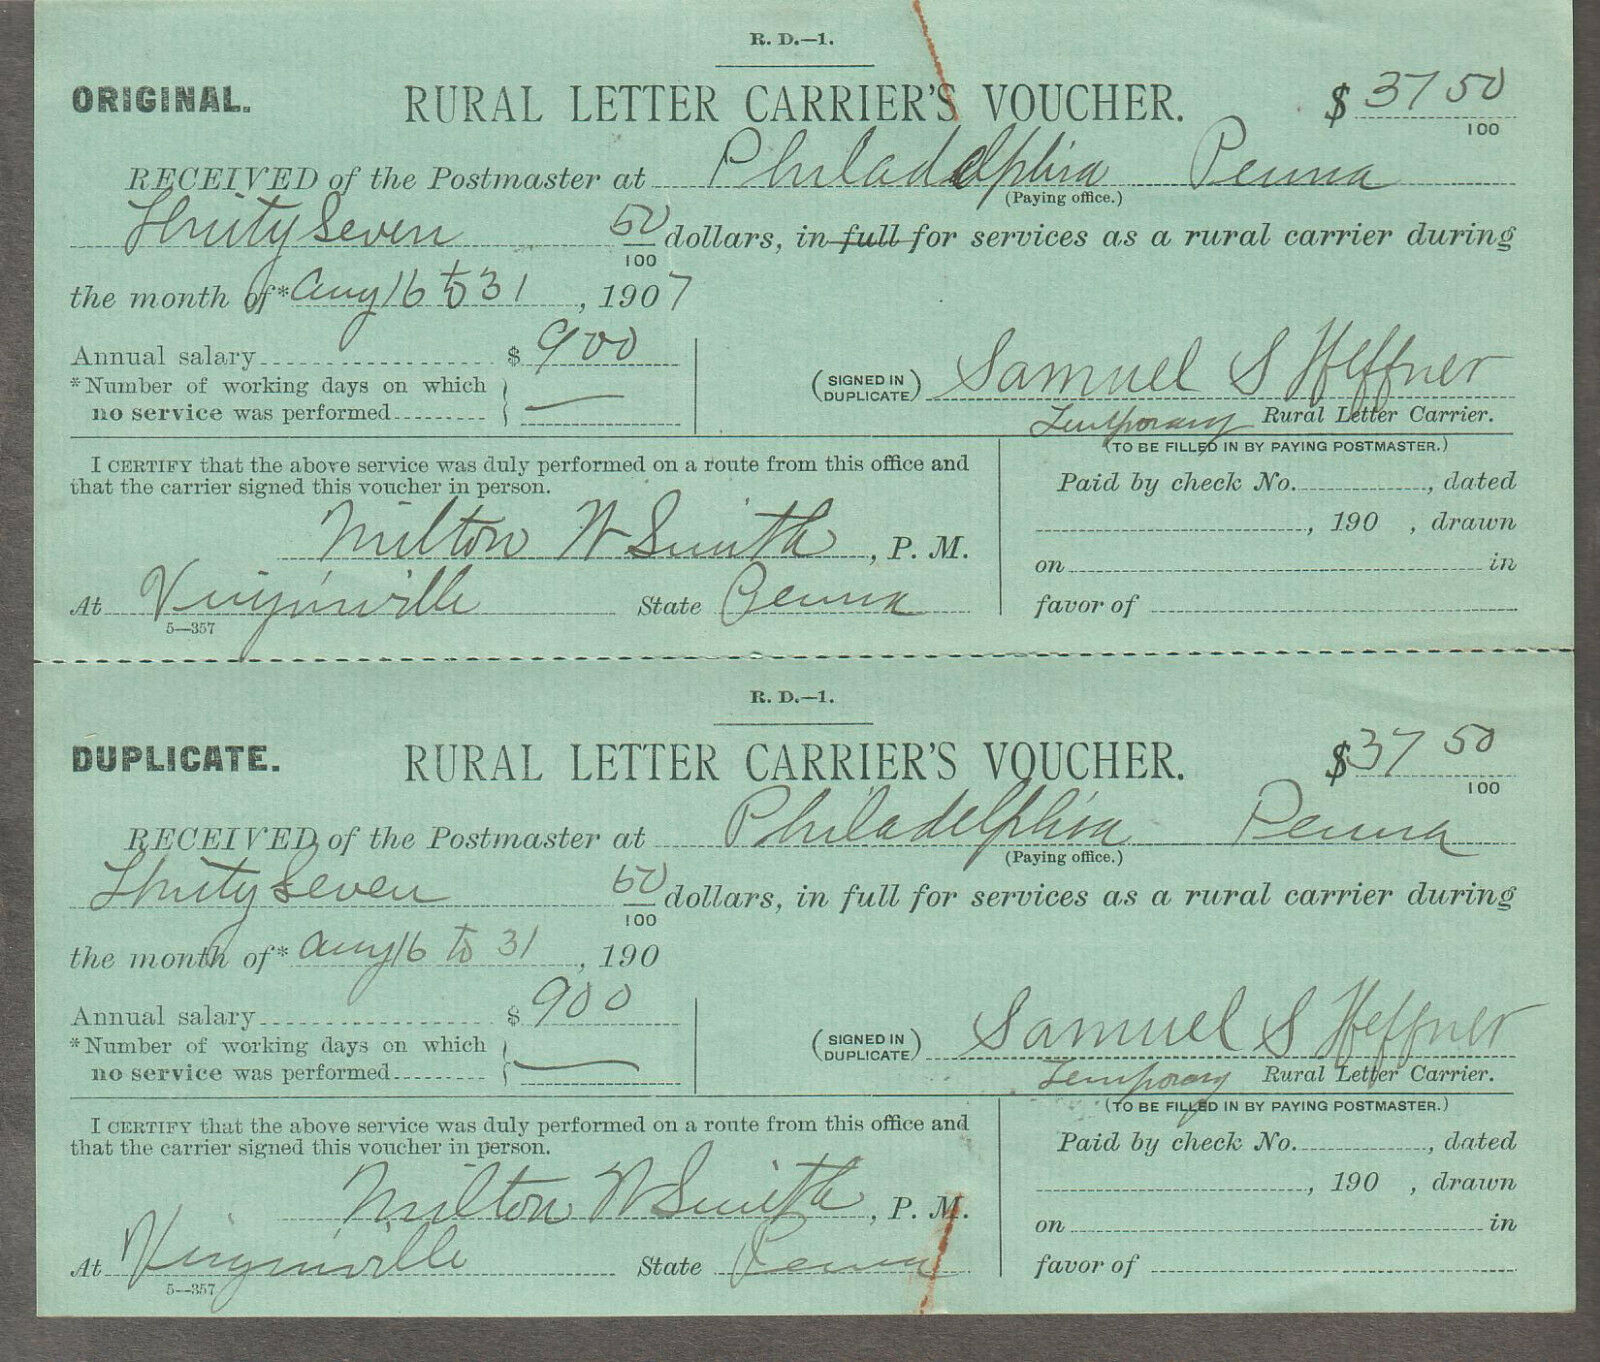 R. D.—1.
ORIGINAL. RURAL LETTER CARRIER'S VOUCHER. $ 37 50/100
RECEIVED of the Postmaster at Philadelphia Penna
(Paying office.)
Thirty Seven 50/100 dollars, in full for services as a rural carrier during
the month of* Aug 16 to 31, 1907
Annual salary $ 900
*Number of working days on which
no service was performed —
(SIGNED IN DUPLICATE) Samuel S Heffner
Temporary Rural Letter Carrier.
I CERTIFY that the above service was duly performed on a route from this office and
that the carrier signed this voucher in person.
Milton W Smith, P. M.
At Virginville State Penna
5—357
(TO BE FILLED IN BY PAYING POSTMASTER.)
Paid by check No. , dated
, 190 , drawn
on in
favor of
R. D.—1.
DUPLICATE. RURAL LETTER CARRIER'S VOUCHER. $ 37 50/100
RECEIVED of the Postmaster at Philadelphia Penna
(Paying office.)
Thirty Seven 50/100 dollars, in full for services as a rural carrier during
the month of* Aug 16 to 31, 190
Annual salary $ 900
*Number of working days on which
no service was performed —
(SIGNED IN DUPLICATE) Samuel S Heffner
Temporary Rural Letter Carrier.
I CERTIFY that the above service was duly performed on a route from this office and
that the carrier signed this voucher in person.
Milton W Smith, P. M.
At Virginville State Penna
5—357
(TO BE FILLED IN BY PAYING POSTMASTER.)
Paid by check No. , dated
, 190 , drawn
on in
favor of